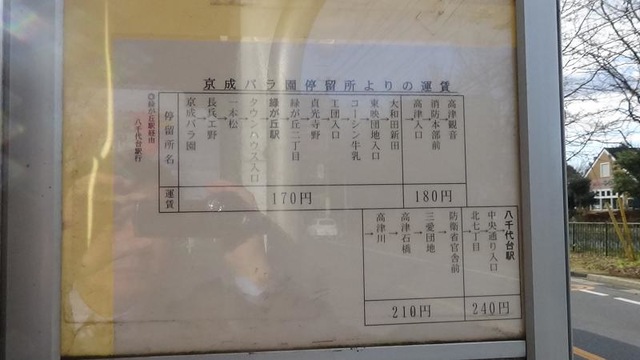 京成バラ園停留所よりの運賃
◎緑が丘駅経由
八千代台駅行
停留所名
京成バラ園
長兵エ野
一本松
タウンハウス入口
緑が丘駅
緑が丘二丁目
貞光寺野
工団入口
コーシン牛乳
東映団地入口
大和田新田
高津入口
消防本部前
高津観音
運賃
170円
180円
高津川
高津石橋
三愛団地
防衛省官舎前
北七丁目
中央通り入口
八千代台駅
210円
240円